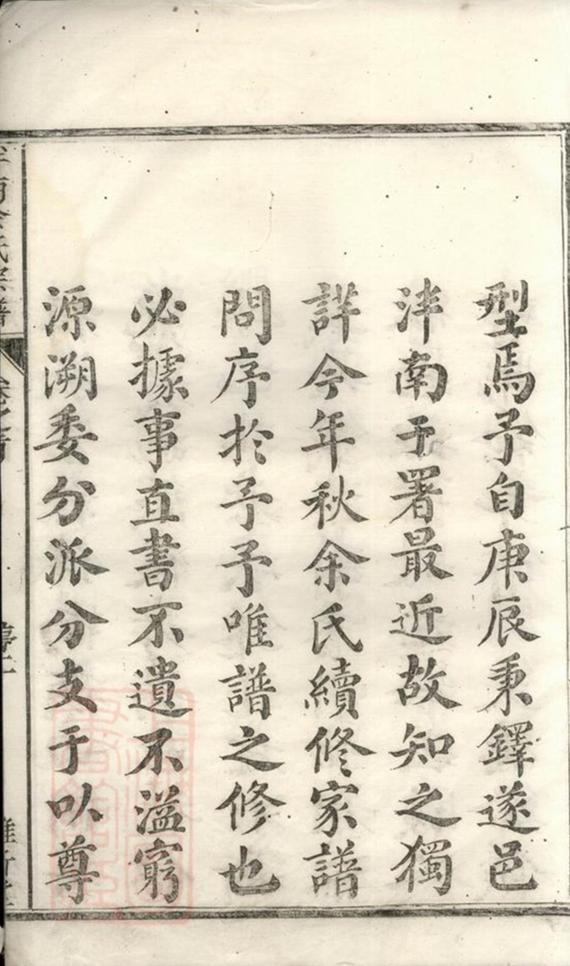 型焉予自庚辰秉鐸遂邑
泮南于署最近故知之獨
詳今年秋余氏續修家譜
問序於予予唯譜之修也
必據事直書不遺不溢窮
源溯委分派分支于以尊
余氏宗譜